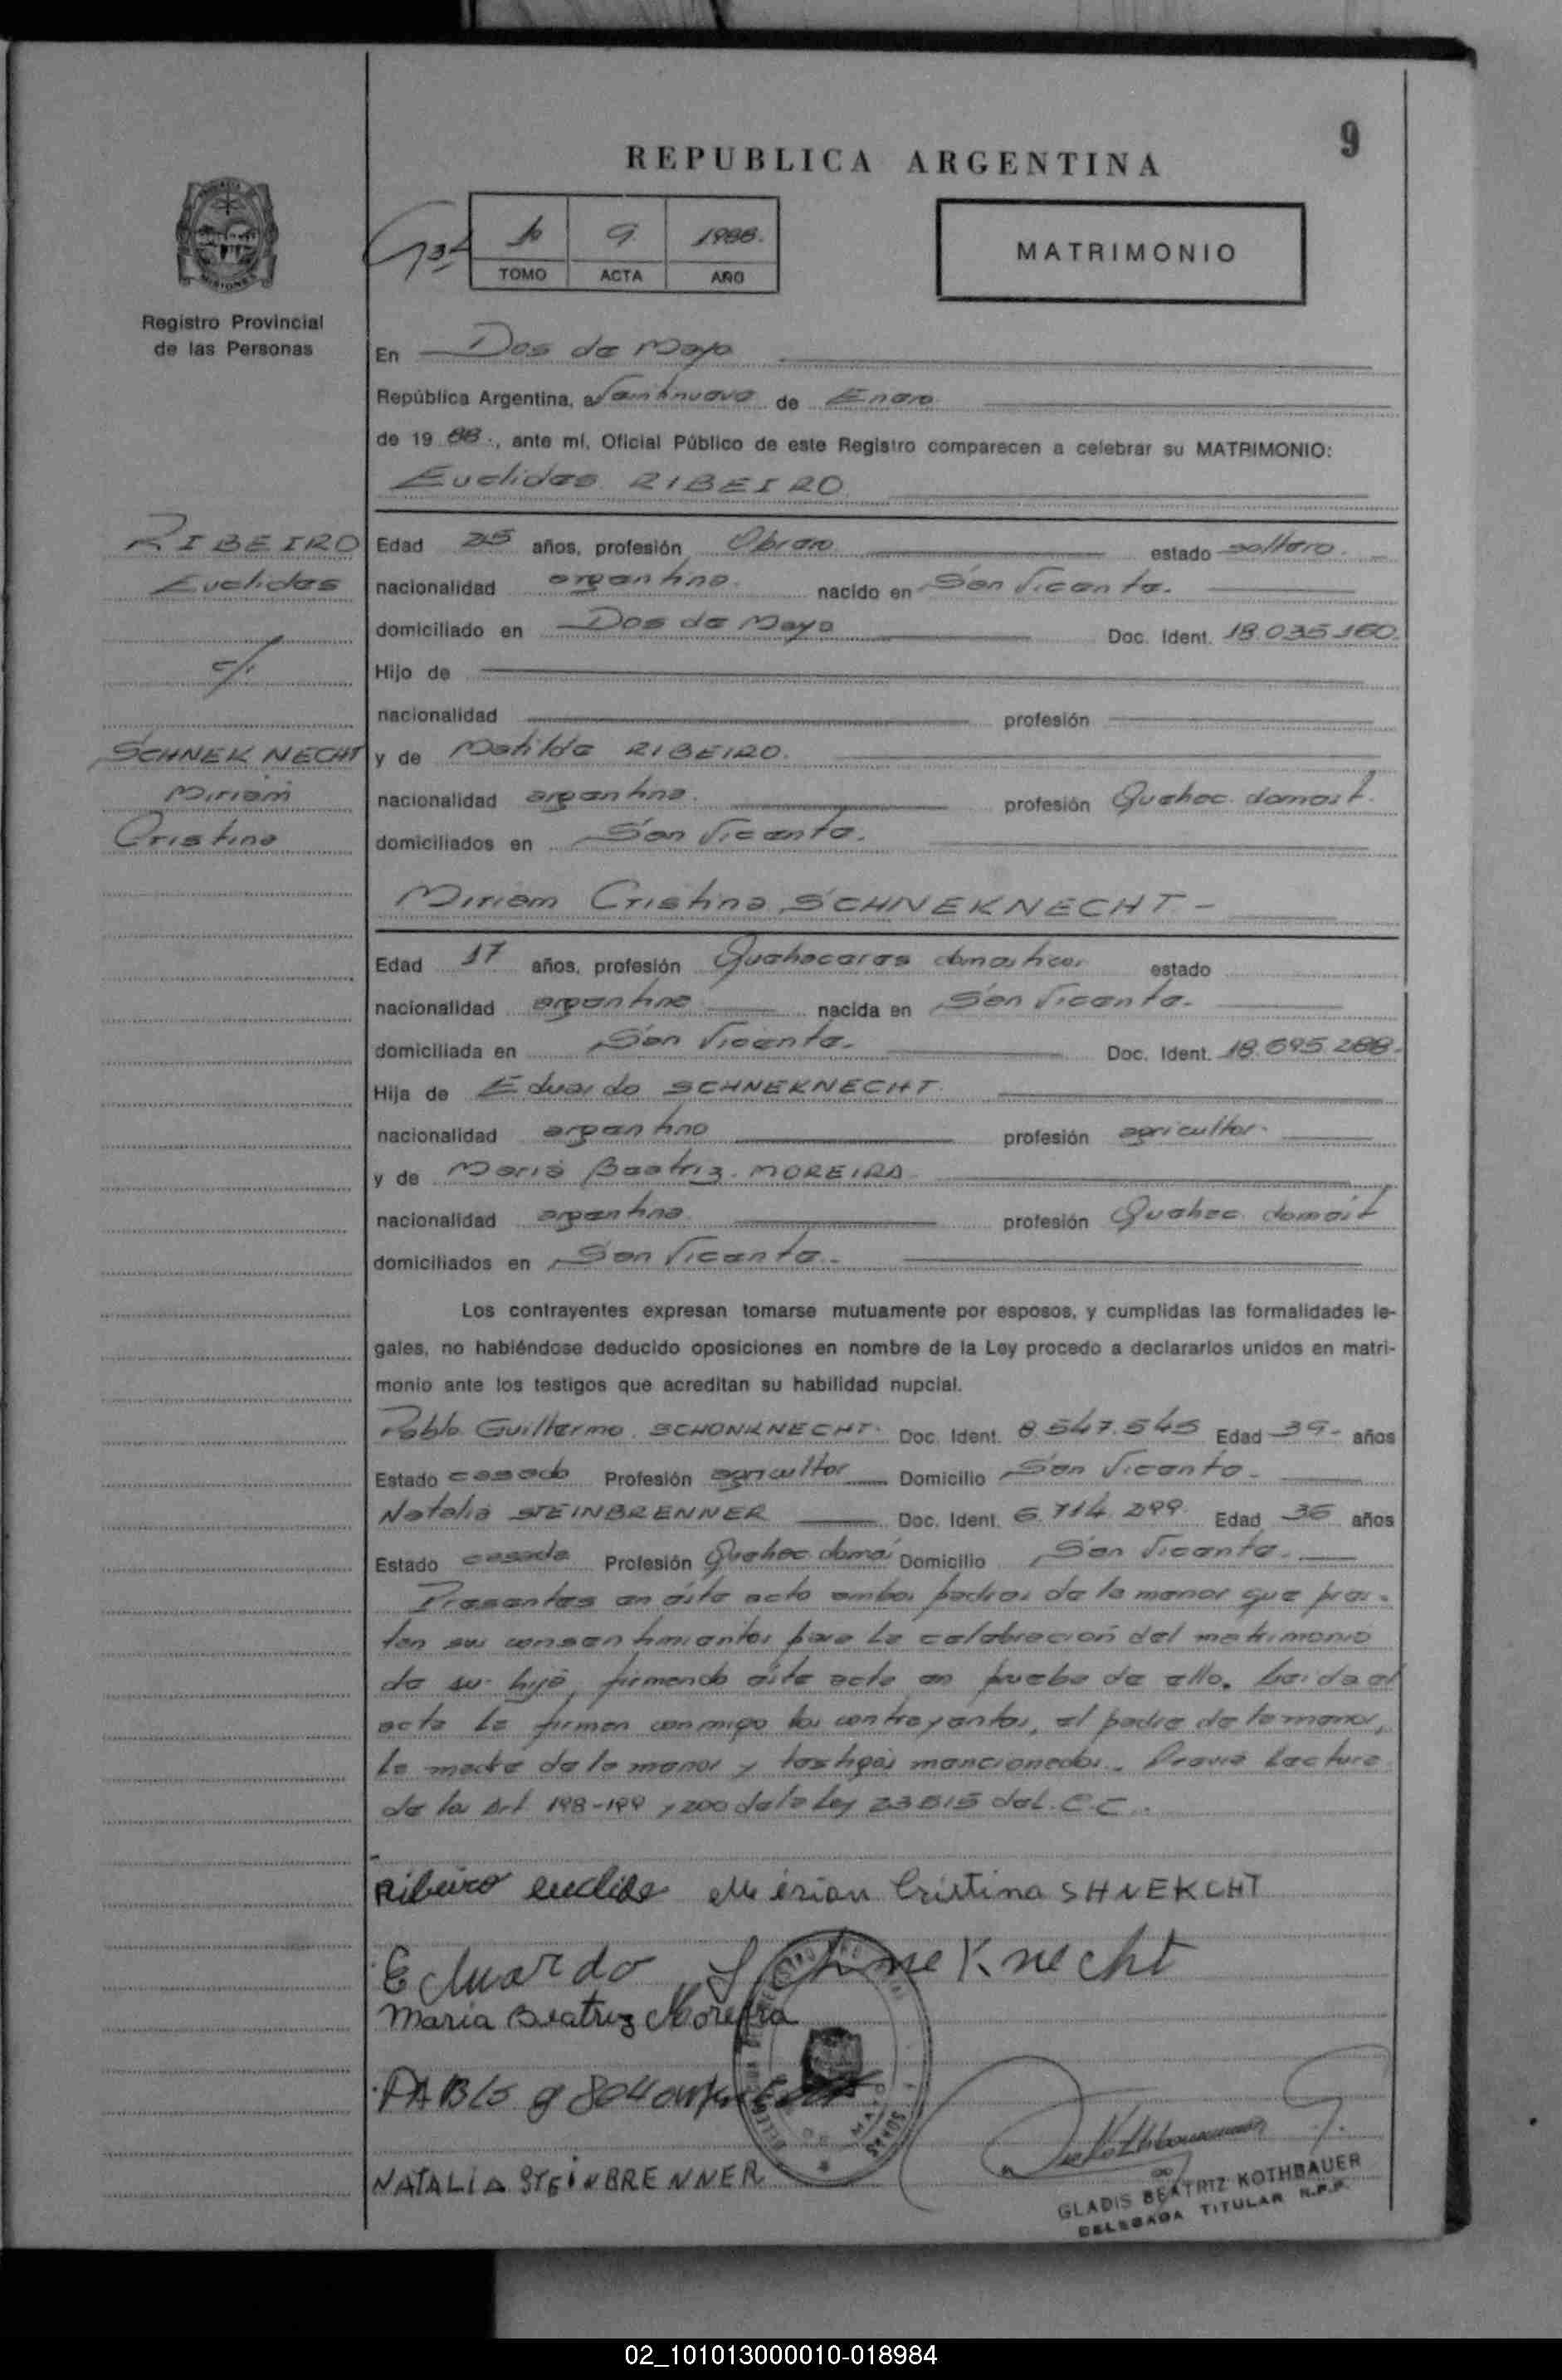 9
REPUBLICA ARGENTINA
1º 9 1988.
TOMO ACTA AÑO
MATRIMONIO
Registro Provincial
de las Personas
En Dos de Mayo
República Argentina, a Veintinueve de Enero
de 19 88., ante mí, Oficial Público de este Registro comparecen a celebrar su MATRIMONIO:
Euclides RIBEIRO
RIBEIRO
Euclides
c/.
SCHNEKNECHT
Miriam
Cristina
Edad 25 años, profesión Obrero estado soltero.
nacionalidad argentina. nacido en San Vicente.
domiciliado en Dos de Mayo Doc. Ident. 18.035.160.
Hijo de
nacionalidad profesión
y de Matilde RIBEIRO.
nacionalidad argentina. profesión Quehac. domést.
domiciliados en San Vicente.
Miriam Cristina SCHNEKNECHT-
Edad 17 años, profesión Quehaceres domésticos estado
nacionalidad argentina nacida en San Vicente.
domiciliada en San Vicente. Doc. Ident. 18.695.288.
Hija de Eduardo SCHNEKNECHT.
nacionalidad argentino profesión agricultor.
y de María Beatriz MOREIRA
nacionalidad argentina. profesión Quehac. domést
domiciliados en San Vicente.
Los contrayentes expresan tomarse mutuamente por esposos, y cumplidas las formalidades le-
gales, no habiéndose deducido oposiciones en nombre de la Ley procedo a declararlos unidos en matri-
monio ante los testigos que acreditan su habilidad nupcial.
Pablo Guillermo SCHONKNECHT. Doc. Ident. 8.547.545 Edad 39- años
Estado casado Profesión agricultor Domicilio San Vicente.
Natalia STEINBRENNER Doc. Ident. 6.714.299. Edad 36 años
Estado casada Profesión Quehac. domé Domicilio San Vicente.
Presentes en éste acto ambos padres de la menor que pres-
tan sus consentimientos para la celebración del matrimonio
de su hija, firmando éste acta en prueba de ello. Leida el
acta la firman conmigo los contrayentes, el padre de la menor,
la madre de la menor y testigos mencionados. Previa lectura
de los Art 198-199 y 200 de la Ley 23515 del C.C..
Ribeiro euclides Mirian Cristina SHNEKCHT
Eduardo SchneKnecht
Maria Beatriz Moreira
PABLO g
NATALIA STEINBRENNER
GLADIS BEATRIZ KOTHBAUER
DELEGADA TITULAR R.P.P.
02_101013000010-018984